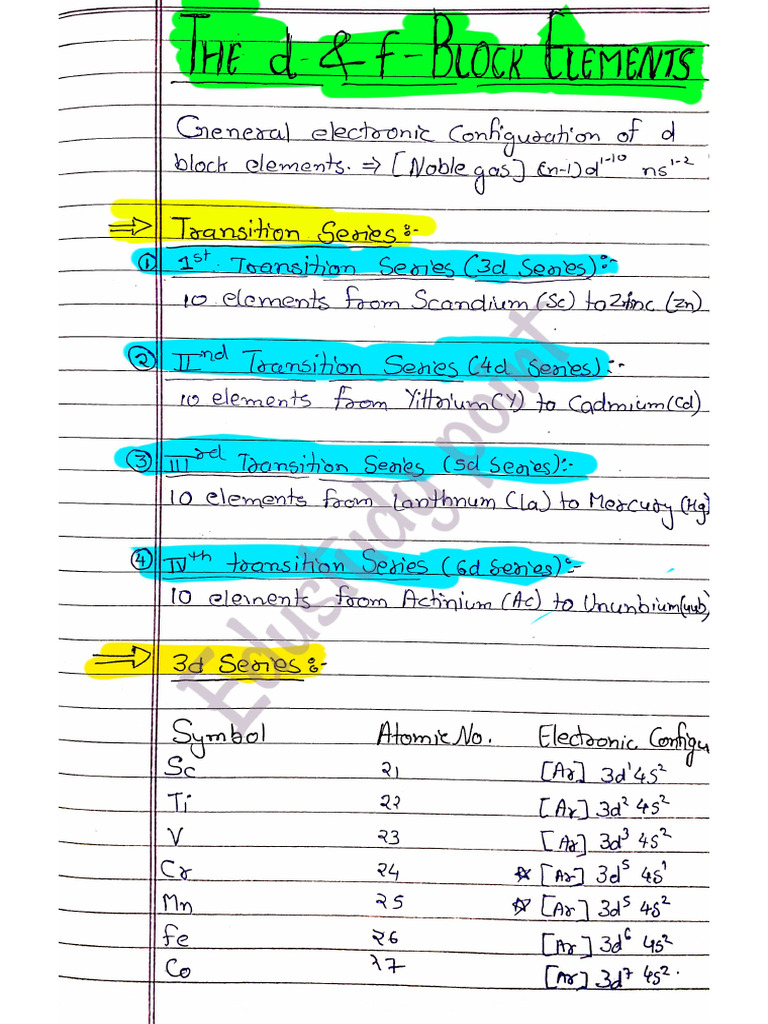 THE d- & f- BLOCK ELEMENTS
General electronic configuration of d
block elements. ⇒ [Noble gas] (n-1)d¹⁻¹⁰ ns¹⁻²
⇒ Transition Series:-
① 1st Transition Series (3d Series):-
10 elements from Scandium (Sc) to Zinc (Zn)
② IInd Transition Series (4d Series):-
10 elements from Yittrium(Y) to Cadmium(Cd)
③ IIIrd Transition Series (5d Series):-
10 elements from Lanthnum (La) to Mercury (Hg)
④ IVth transition Series (6d Series):-
10 elements from Actinium (Ac) to Ununbium(uub)
⇒ 3d Series:-
Symbol Atomic No. Electronic Configu
Sc 21 [Ar] 3d¹ 4s²
Ti 22 [Ar] 3d² 4s²
V 23 [Ar] 3d³ 4s²
Cr 24 ☆ [Ar] 3d⁵ 4s¹
Mn 25 ☆ [Ar] 3d⁵ 4s²
Fe 26 [Ar] 3d⁶ 4s²
Co 27 [Ar] 3d⁷ 4s².
Edustudy point